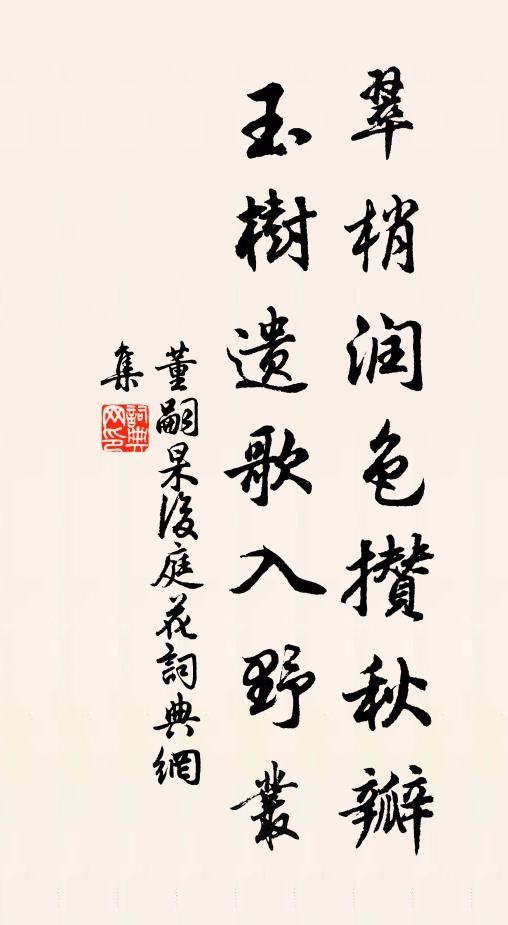 翠梢润色攢秋瓣
玉樹遺歌入野叢
董嗣杲後庭花詞典網
集
詞典
网印